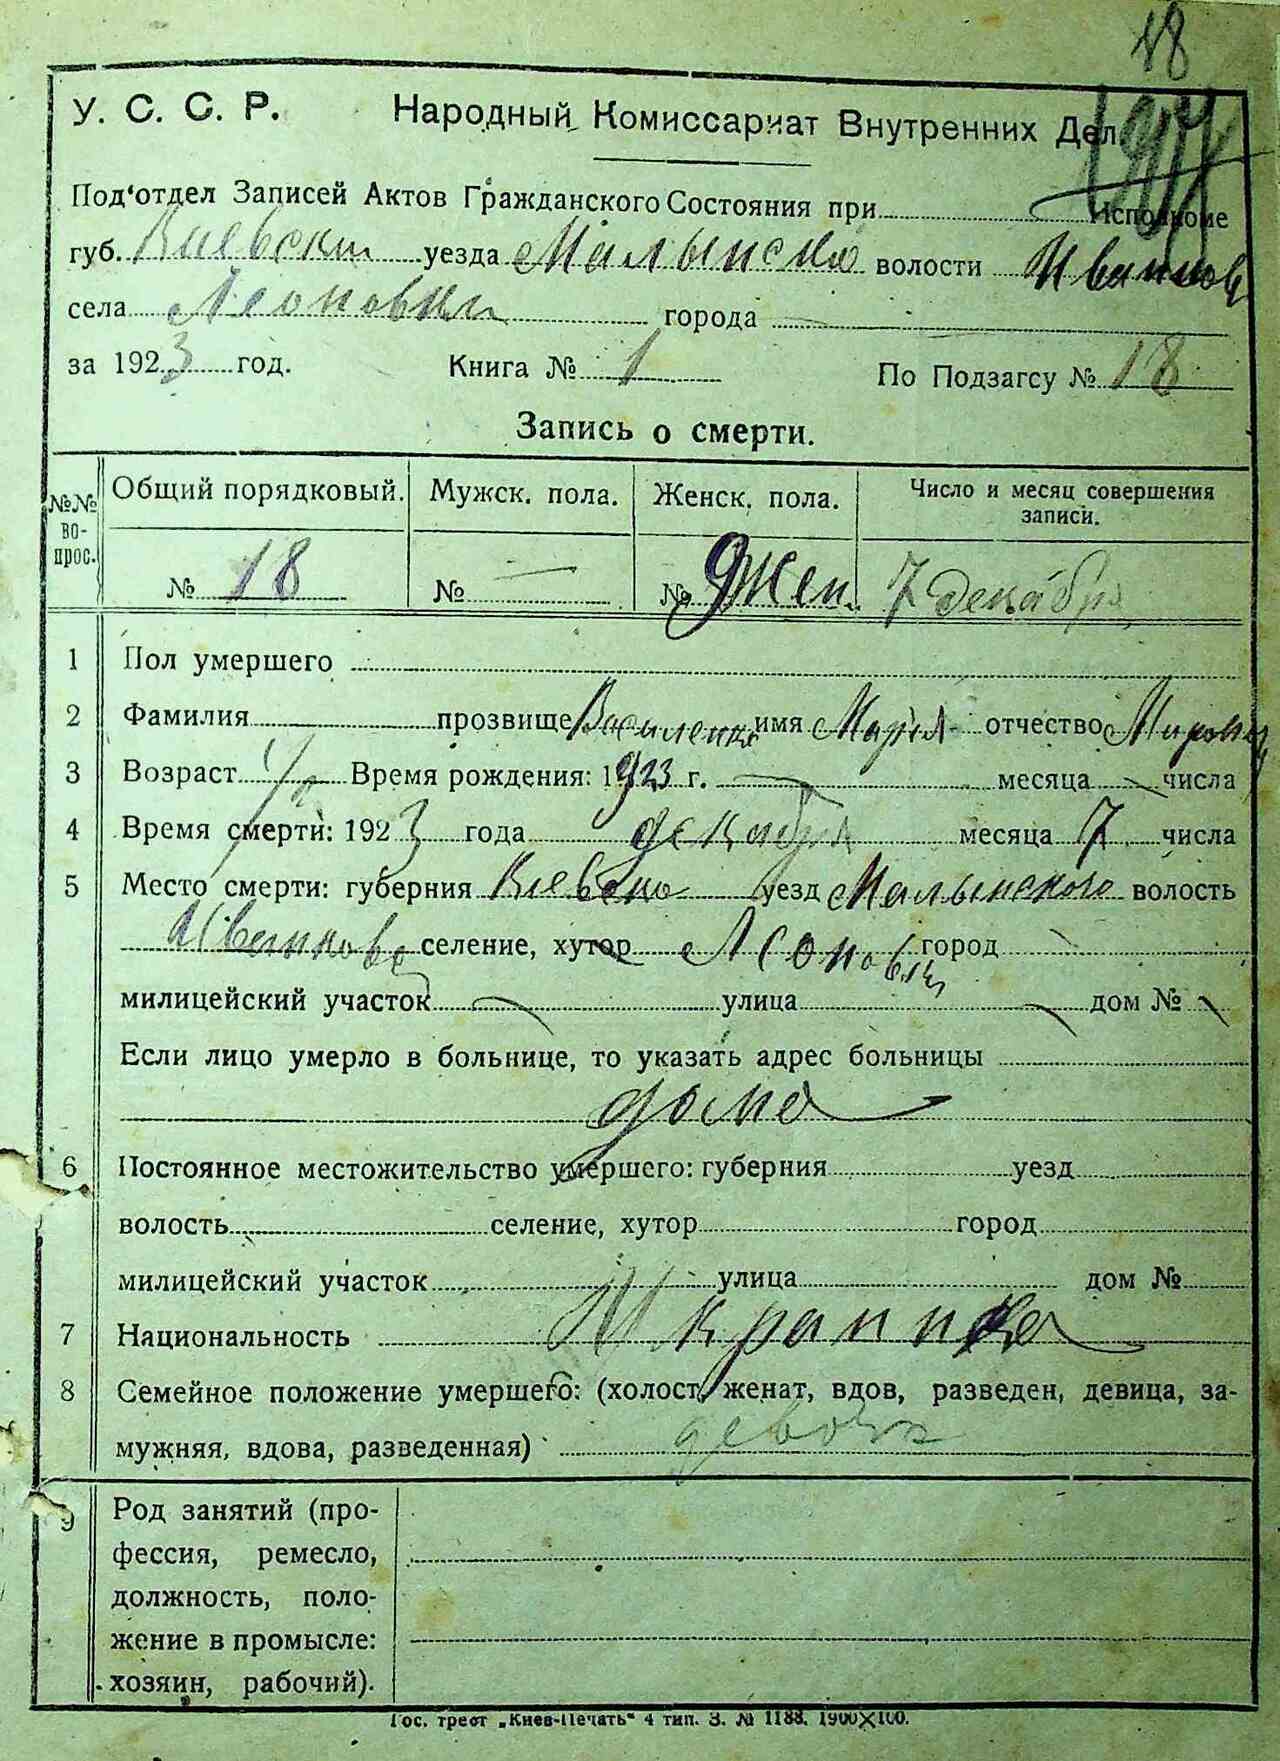 18
У. С. С. Р. Народный Комиссариат Внутренних Дел
Под'отдел Записей Актов Гражданского Состояния при Исполкоме
губ. Киевски уезда Малынско волости Иванков
села Леоновки города
за 1923 год. Книга № 1 По Подзагсу № 18
Запись о смерти.
№№ вопрос. Общий порядковый. Мужск. пола. Женск. пола. Число и месяц совершения записи.
№ 18 № — № 9 жен. 7 декабря
1 Пол умершего
2 Фамилия прозвище Василенко имя Мария отчество
3 Возраст 1/2 Время рождения: 1923 г. месяца числа
4 Время смерти: 1923 года декабря месяца 7 числа
5 Место смерти: губерния Киевско уезд Малынского волость
Иванково селение, хутор Леоновки город
милицейский участок улица дом №
Если лицо умерло в больнице, то указать адрес больницы
дома
6 Постоянное местожительство умершего: губерния уезд
волость селение, хутор город
милицейский участок улица дом №
7 Национальность
8 Семейное положение умершего: (холост, женат, вдов, разведен, девица, за-
мужняя, вдова, разведенная)
9 Род занятий (про-
фессия, ремесло,
должность, поло-
жение в промысле:
хозяин, рабочий).
Гос. трест „Киев-Печать“ 4 тип. З. № 1188. 1900×100.